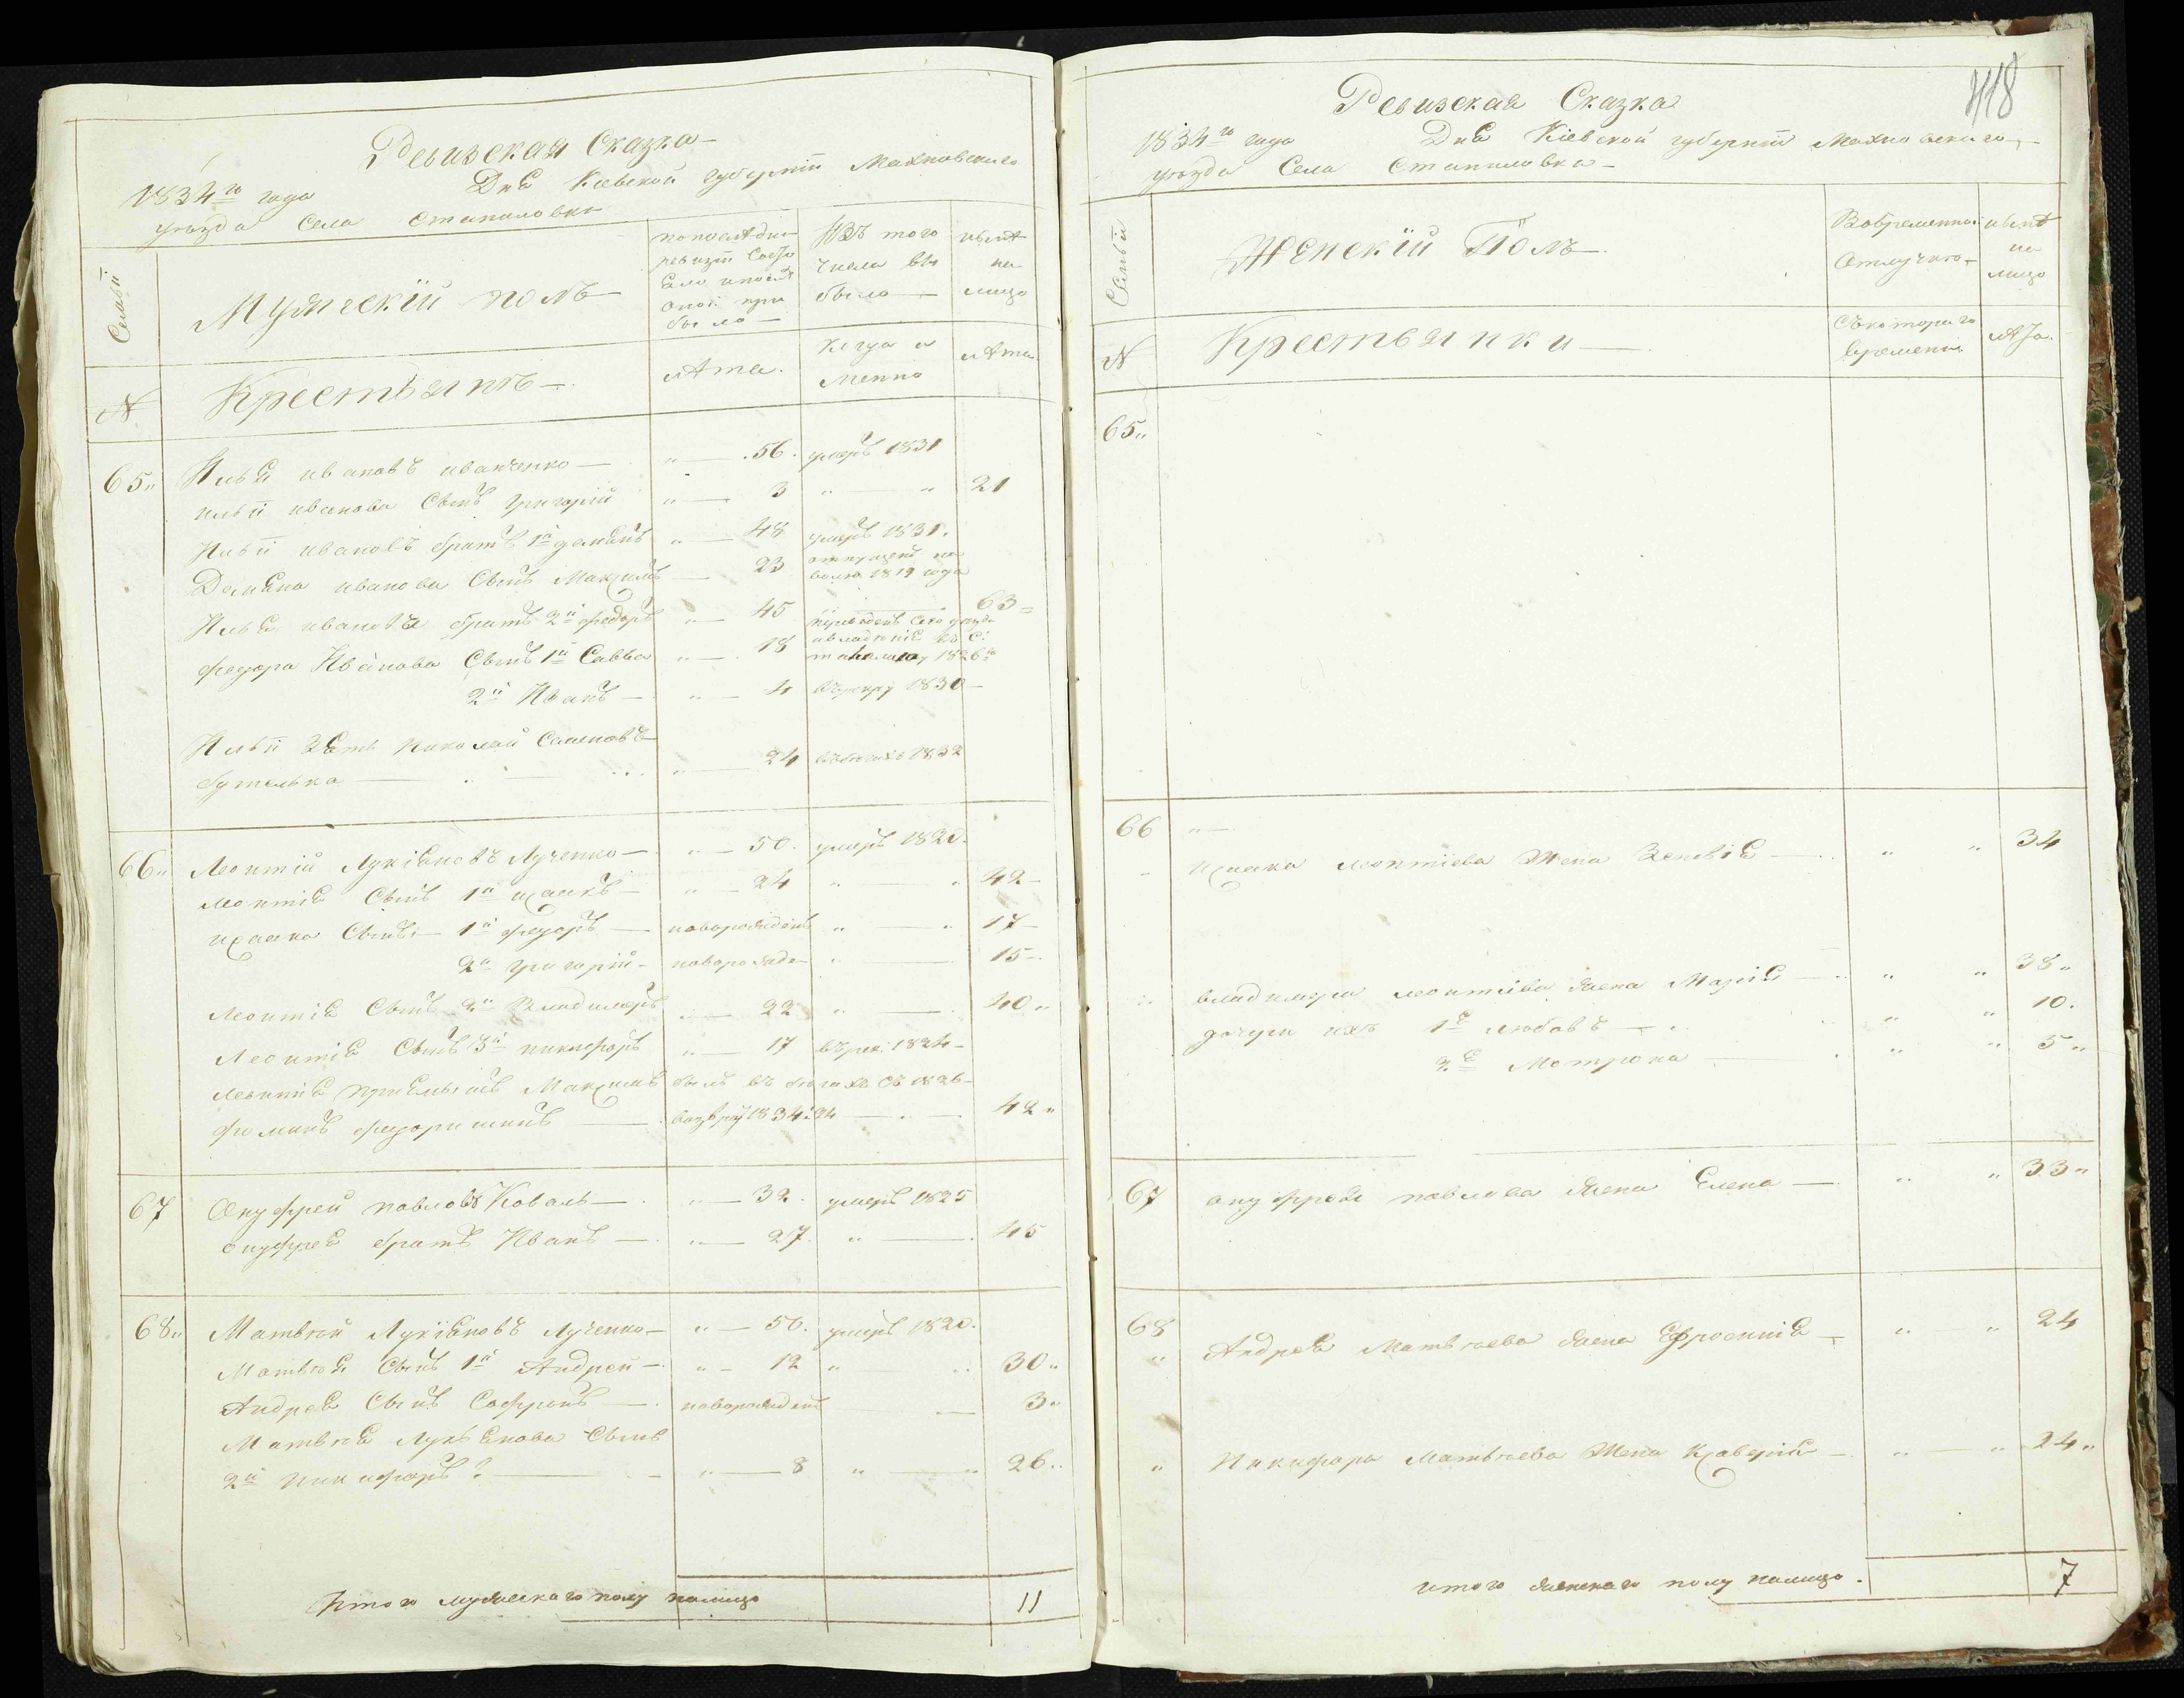 Ревизская Сказка
1834го года Дня Кіевской губерніи Махновского
уезда Села Стапиловки
Семьи
Мужескій полъ
по последней ревизіи состояло и после оной прибыло
Изъ того числа выбыло
ныне на лицо
N
Крестьянъ
лета
когда именно
лета
65 Илья ивановъ иванченко 56. умеръ 1831
ильи иванова Сынъ григорій 3 21
Ильи ивановъ братъ 1й демянъ 48 умеръ 1831.
Демяна иванова Сынъ Максимъ 23 отпущенъ на волю 1819 года
Илья ивановъ братъ 2й федоръ 45 63
федора Иванова Сынъ 1й Савва 18 1826го
2й Иванъ 4 1830
Ильи Зять Николай Семеновъ
бутелька 24 въ бегахъ 1832
66 Леонтій Лукіяновъ Лученко 50. умеръ 1820.
леонтія Сынъ 1й исаакъ 24 42
исаака Сынъ 1й федоръ новорожденъ 17
2й григорій новорожде 15
Леонтія Сынъ 2й Владимеръ 22 40
Леонтія Сынъ 3й никифоръ 17 въ рек: 1824
леонтія пріемышъ Максимъ былъ въ бегахъ съ 1826
возвра 1834: 24 42
67 Онуфрей павловъ Коваль 32. умеръ 1825
онуфрея братъ Иванъ 27 45
68 Матвей Лукіяновъ Лученко 50. умеръ 1820.
Матвея Сынъ 1й Андрей 12 30
Андрея Сынъ Софронъ новорожденъ 3
Матвея Лукьянова Сынъ
2й никифоръ 8 26
Итого мужеска го полу налицо 11
418
Ревизская Сказка
1834го года Дня Кіевской губерніи Махновского
уезда Села Стапиловки
Семьи
Женскій Полъ
Во временной отлучке
ныне на лицо
N
Крестьянки
Съ котораго времени
лета.
65
66
исаака леонтіева Жена Зеновія 34
владимера леонтіева жена Марія 38
дочери ихъ 1я любовъ 10.
2я Мотрона 5
67 онуфрея павлова жена Елена 33
68 Андрея Матвеева жена Ефросинія 24
Никифора Матвеева Жена 24
итого женскаго полу налицо. 7